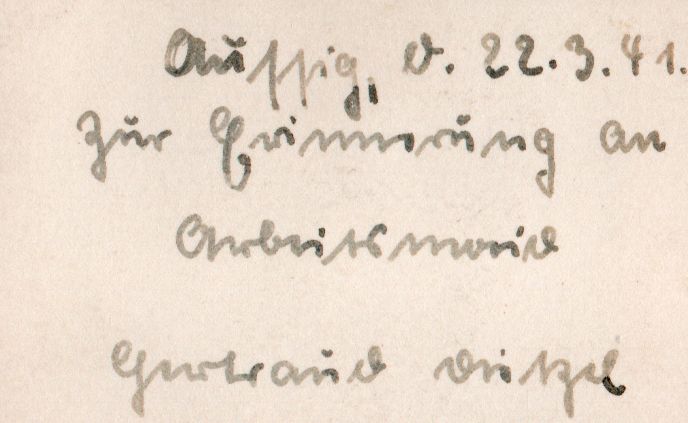 Aussig, d. 22.3.41.
Zur Erinnerung an
Arbeitsmaid
Gertraud Dietzel